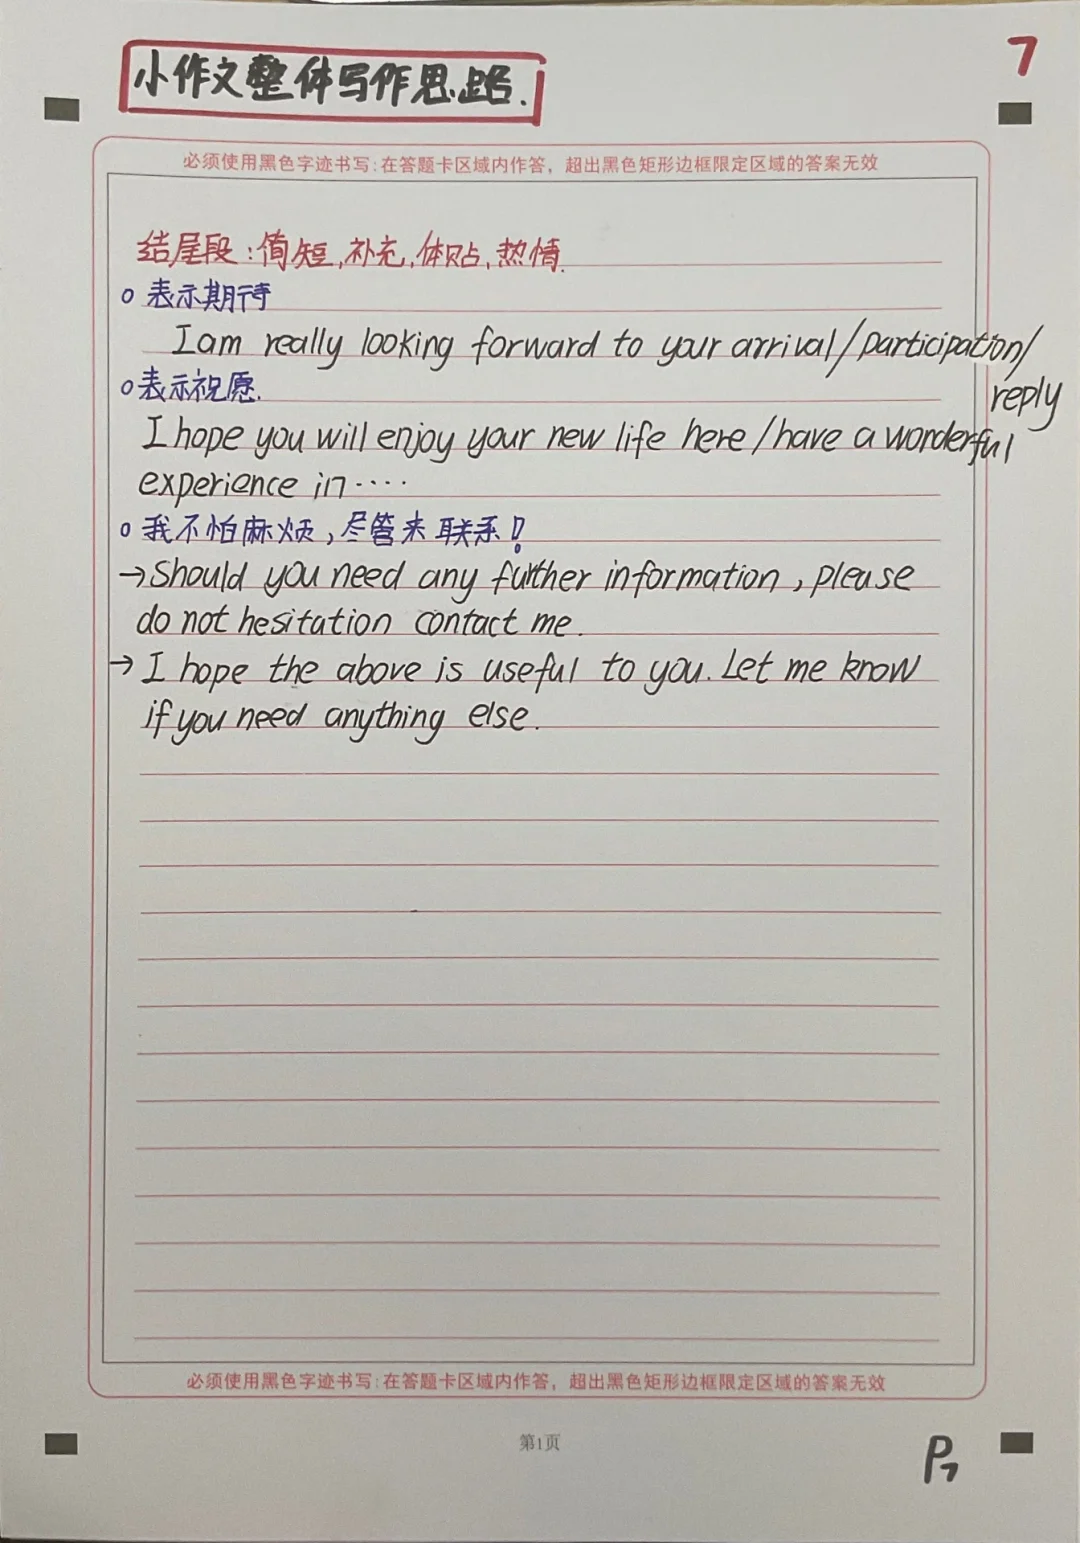 小作文整体写作思路.
7
必须使用黑色字迹书写:在答题卡区域内作答，超出黑色矩形边框限定区域的答案无效
结尾段:简短,补充,体贴,热情.
o 表示期待
I am really looking forward to your arrival/participation/
reply
o 表示祝愿.
I hope you will enjoy your new life here/have a wonderful
experience in····
o 我不怕麻烦,尽管来联系!
→Should you need any further information, please
do not hesitation contact me.
→I hope the above is useful to you. Let me know
if you need anything else.
必须使用黑色字迹书写:在答题卡区域内作答，超出黑色矩形边框限定区域的答案无效
第1页
P7